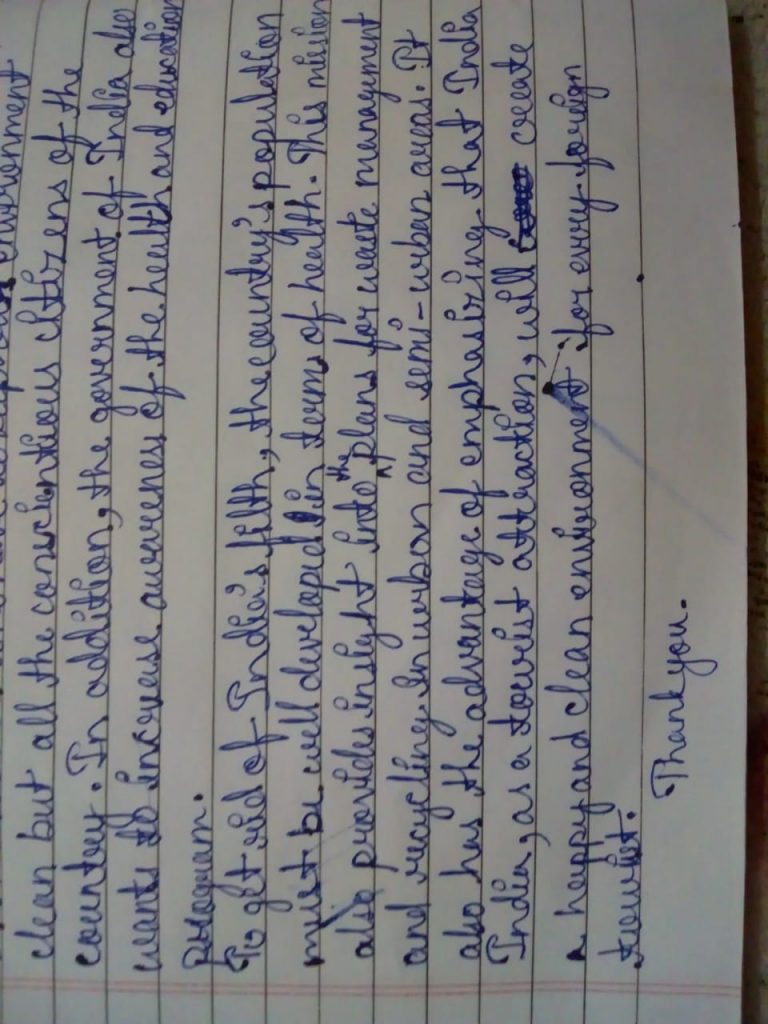 environment
clean but all the conscientious citizens of the
country. In addition, the government of India also
wants to increase awareness of the health and education
Program.
To get rid of India's filth, the country's population
must be well developed in terms of health. This mission
also provides insight into the plans for waste management
and recycling in urban and semi-urban areas. It
also has the advantage of emphasizing that India
India, as a tourist attraction, will create
a happy and clean environment for every foreign
tourist.
Thank you.